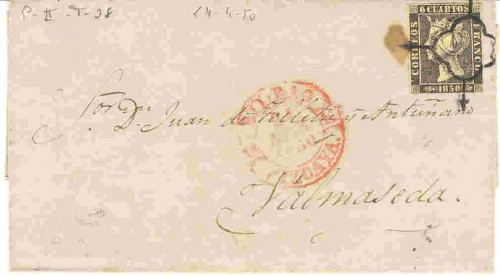 P-II-T-98
24-4-50
6 CUARTOS
CORREOS
FRANCO
1850
Sor Dn
D. Juan de y Antuñano
Valmaseda.